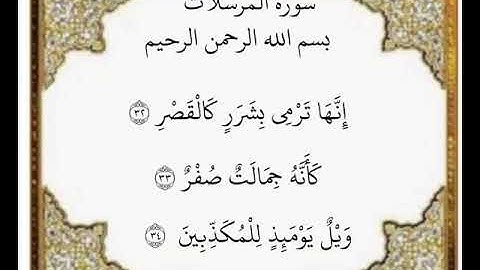 سورة المرسلات
بسم الله الرحمن الرحيم
إِنَّهَا تَرْمِى بِشَرَرٍ كَالْقَصْرِ ٣٢
كَأَنَّهُ جِمَالَتٌ صُفْرٌ ٣٣
وَيْلٌ يَوْمَئِذٍ لِلْمُكَذِّبِينَ ٣٤